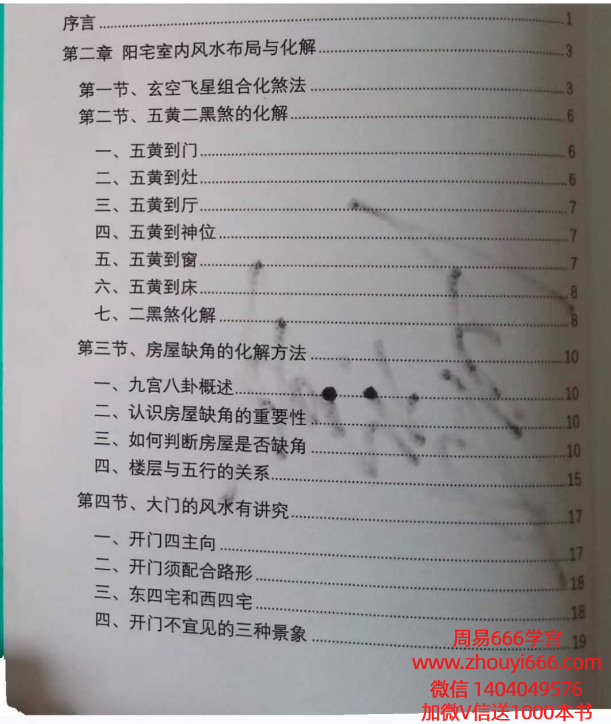 序言 1
第二章 阳宅室内风水布局与化解 3
第一节、玄空飞星组合化煞法 3
第二节、五黄二黑煞的化解 6
一、五黄到门 6
二、五黄到灶 6
三、五黄到厅 7
四、五黄到神位 7
五、五黄到窗 7
六、五黄到床 8
七、二黑煞化解 8
第三节、房屋缺角的化解方法 10
一、九宫八卦概述 10
二、认识房屋缺角的重要性 10
三、如何判断房屋是否缺角 10
四、楼层与五行的关系 15
第四节、大门的风水有讲究 17
一、开门四主向 17
二、开门须配合路形 18
三、东四宅和西四宅 18
四、开门不宜见的三种景象 19
周易666学宫
www.zhouyi666.com
微信 1404049576
加微V信送1000本书